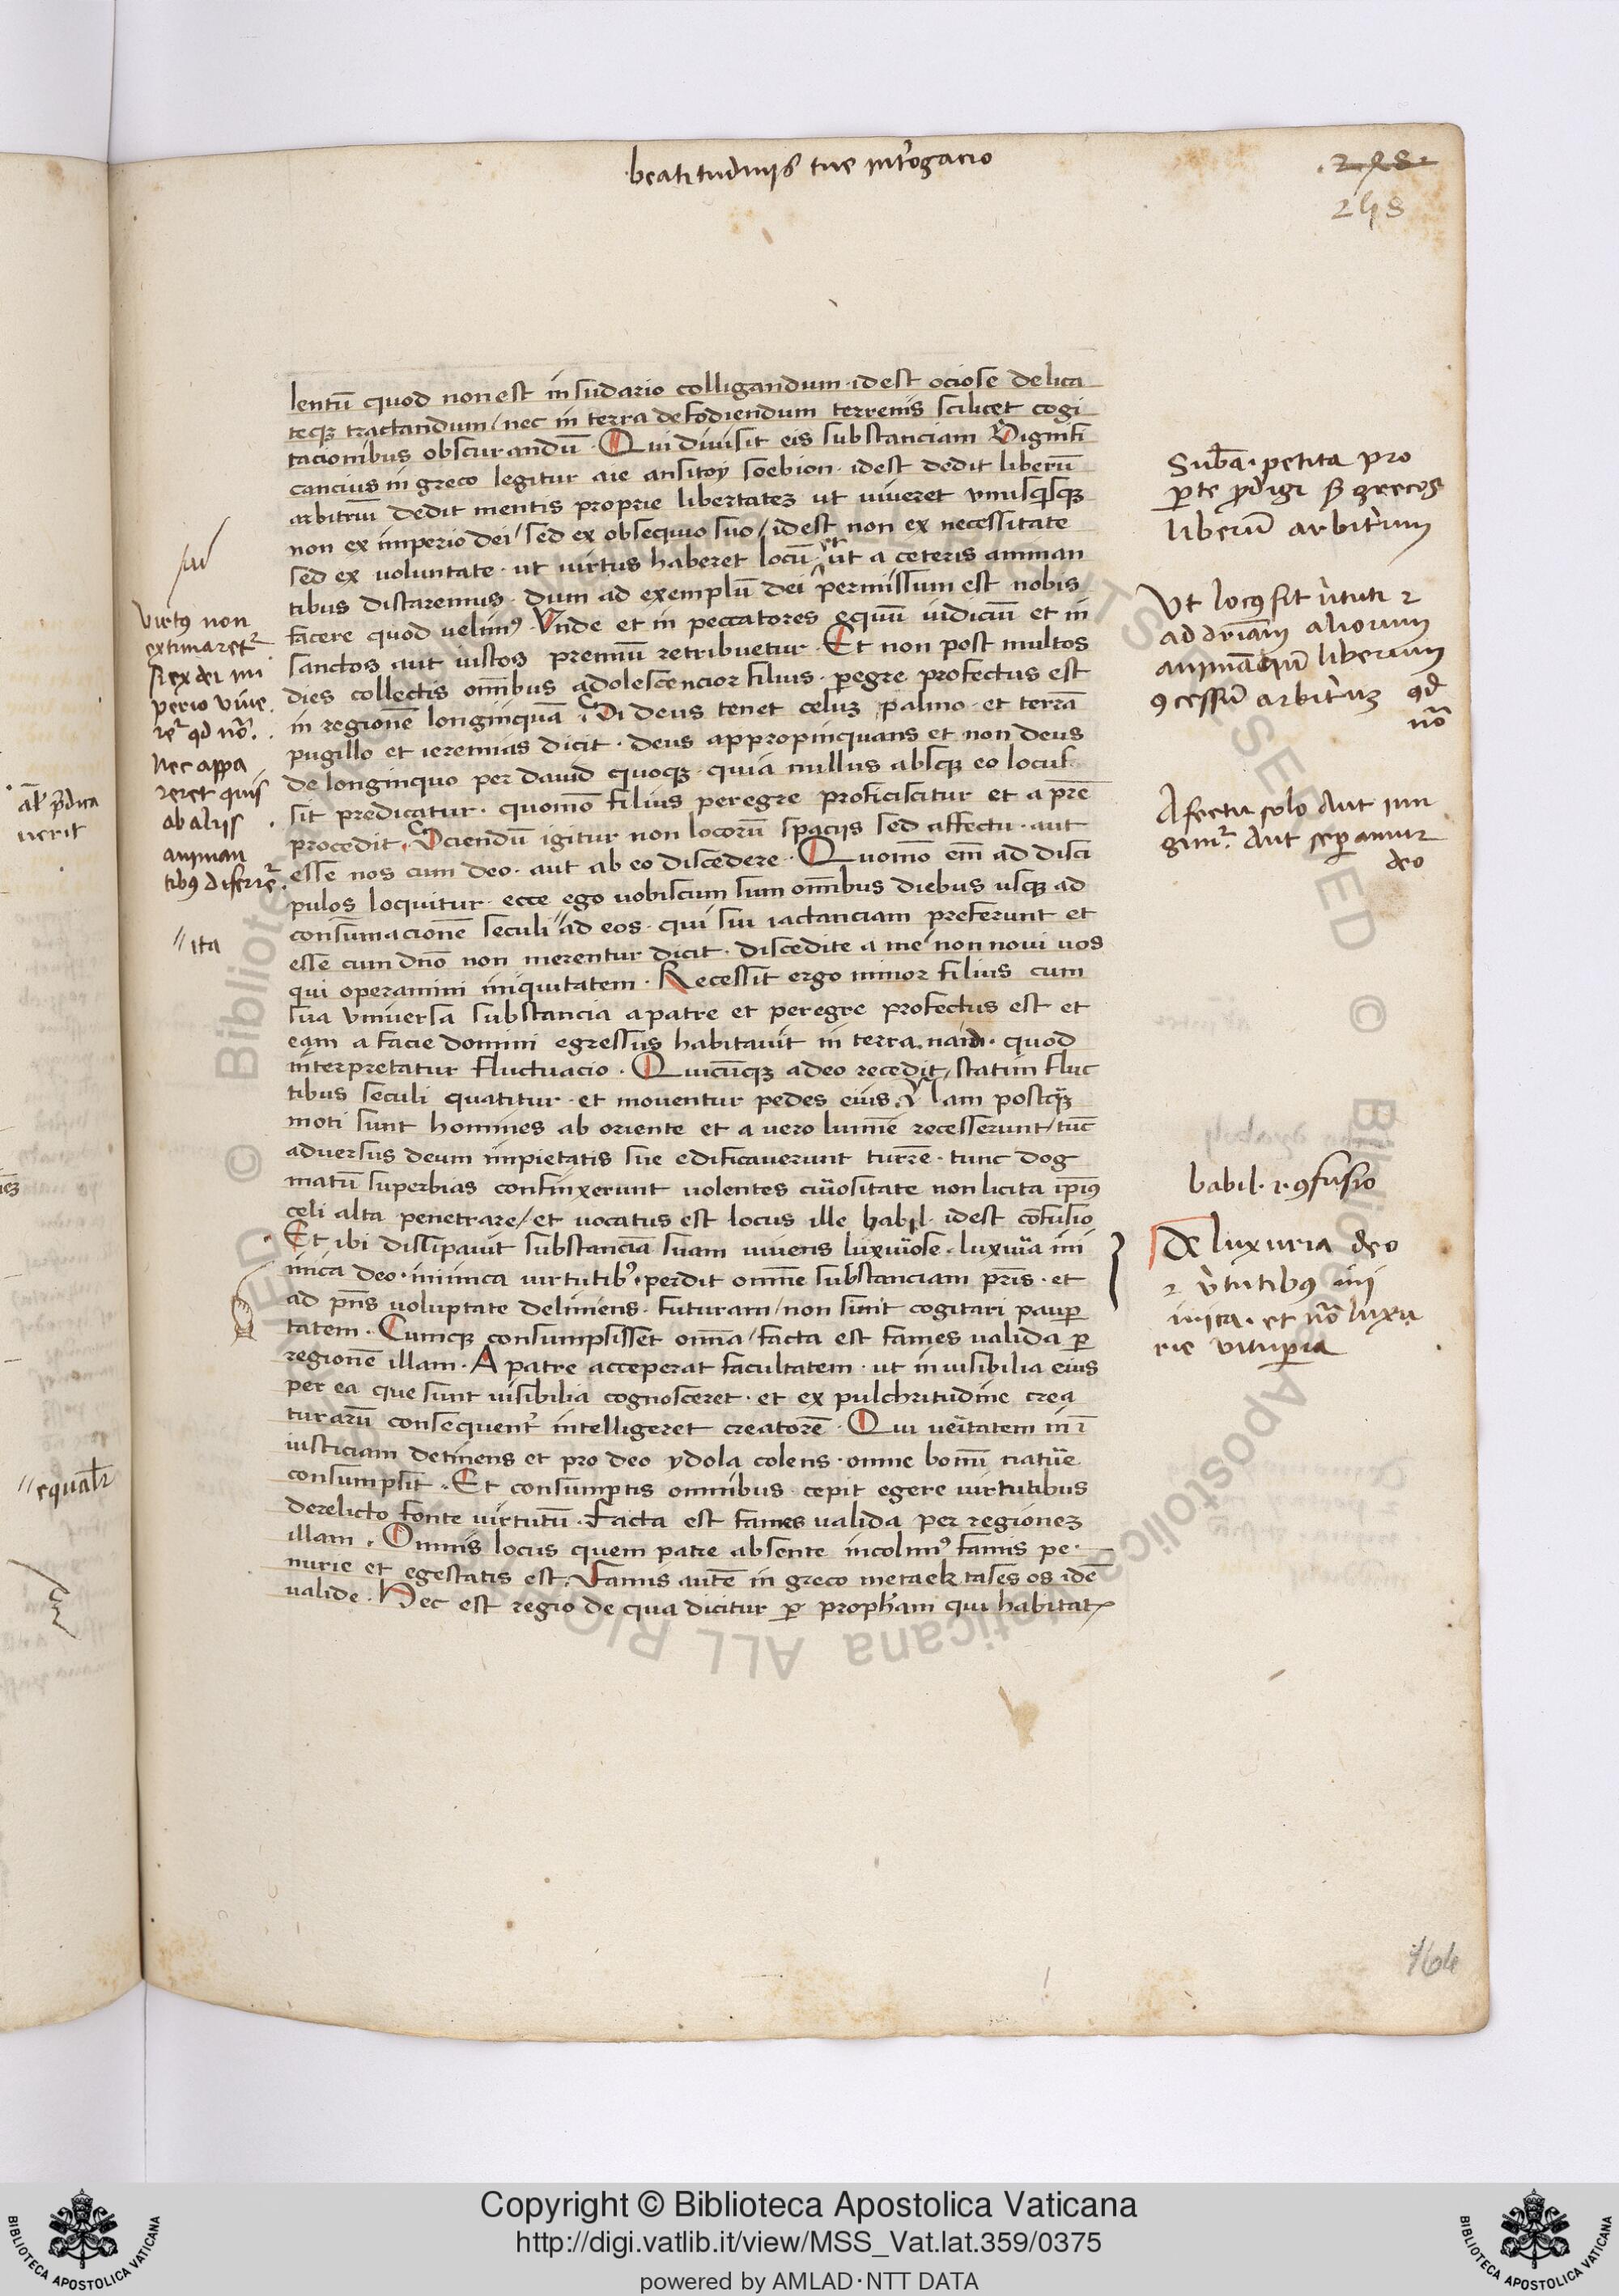 beatitudinis tue int'rogacio
248
248
lentū quod non est in sudario colligandum · idest ociose delica
teqȝ tractandum / nec in terra defodiendum terrenis scilicet cogi
tacionibus obscurandū · Qui divisit eis substanciam Signifi
cancius in greco legitur aie ansitoy soebion · idest dedit liberū
arbitriū dedit mentis proprie libertateȝ ut viveret unusqisqȝ
non ex imperio dei / sed ex obsequio suo / idest non ex necessitate
sed ex voluntate · ut virtus haberet locū · et ut a ceteris animan
tibus distaremus · dum ad exemplū dei permissum est nobis
facere quod velimꝰ · Unde et in peccatores equū iudiciū et in
sanctos aut iustos premiū retribuetur · Et non post multos
dies collectis om̄ibus adolescencior filius · peregre profectus est
in regionē longinquā · Si deus tenet celuȝ palmo · et terrā
pugillo et ieremias dicit · deus appropinquans et non deus
de longinquo per david quoqȝ · quia nullus absqȝ eo locus
sit predicatur · quomō filius peregre proficiscitur et a prē
procedit · Sciendū igitur non locorū spaciis sed affectu · aut
esse nos cum deo · aut ab eo discedere · Quomō em̄ ad disci
pulos loquitur · ecce ego vobiscum sum om̄ibus diebus usqȝ ad
consūmacionē seculi " ad eos · qui sui iactanciam preferunt et
esse cum dn̄o non merentur dicit · discedite a me non novi vos
qui operamini iniquitatem · Recessit ergo minor filius cum
sua universa substancia a patre et peregre profectus est et
eam a facie domini egressus habitavit in terra naid · quod
interpretatur fluctuacio · Quicūqȝ a deo recedit / statim fluc
tibus seculi quatitur · et moventur pedes eius · Nam postqȝ
moti sunt homines ab oriente et a vero lumīe recesserunt / tūc
adversus deum impietatis sue edificaverunt turrē · tunc dog
matū superbias confinxerunt volentes cu̇iositate non licita ip̄iꝰ
celi alta penetrare / et vocatus est locus ille babil · idest cōfusio
Et ibi dissipavit substanciā suam vivens luxuiose · luxuia ini
mica deo · inimica virtutibꝰ · perdit omnē substanciam pr̄is · et
ad pn̄s voluptate deliniens · futuram / non sinit cogitari pauper
tatem · Cumqȝ consumpsisset om̄ia / facta est fames valida p
regionē illam · A patre acceperat facultatem · ut invisibilia eius
per ea que sunt visibilia cognosceret · et ex pulchritudine crea
turarū consequent' intelligeret creatorē · Qui veitatem in ī
iusticiam detinens et pro deo ydola colens · omne bonū natue
consumpsit · Et consumptis omnibus cepit egere virtutibus
derelicto fonte virtutū · Facta est fames valida per regioneȝ
illam · Omnis locus quem patre absente incolimꝰ famis pe
nurie et egestatis est · Famis autē in greco metaek tases os idē
valide · Hec est regio de qua dicitur p prophām qui habitat
Sub̄a · petita pro
pte prodigi s3 grecos
liberū arbitrium
Ut locꝰ sit v'tuti et
ad dr̄iam aliorum
animātiū liberum
ꝯcessū arbitriuȝ qd
nō
Afectu solo aut iun
gimr aut sepamur
deo
babil · i · ꝯfusio
De luxuria deo
et v'tutibꝰ ini
mica · et nō luxu
rie vitupia
virtꝰ non
extimaretr
si ex dei im
perio vive
rer qd nō
Nec appa
reret quis
ab aliis
animan
tibꝰ diferr
" ita
al' p̄dica
verit
" equal'r
164
Copyright © Biblioteca Apostolica Vaticana
http://digi.vatlib.it/view/MSS_Vat.lat.359/0375
powered by AMLAD·NTT DATA
BIBLIOTECA APOSTOLICA VATICANA
BIBLIOTECA APOSTOLICA VATICANA